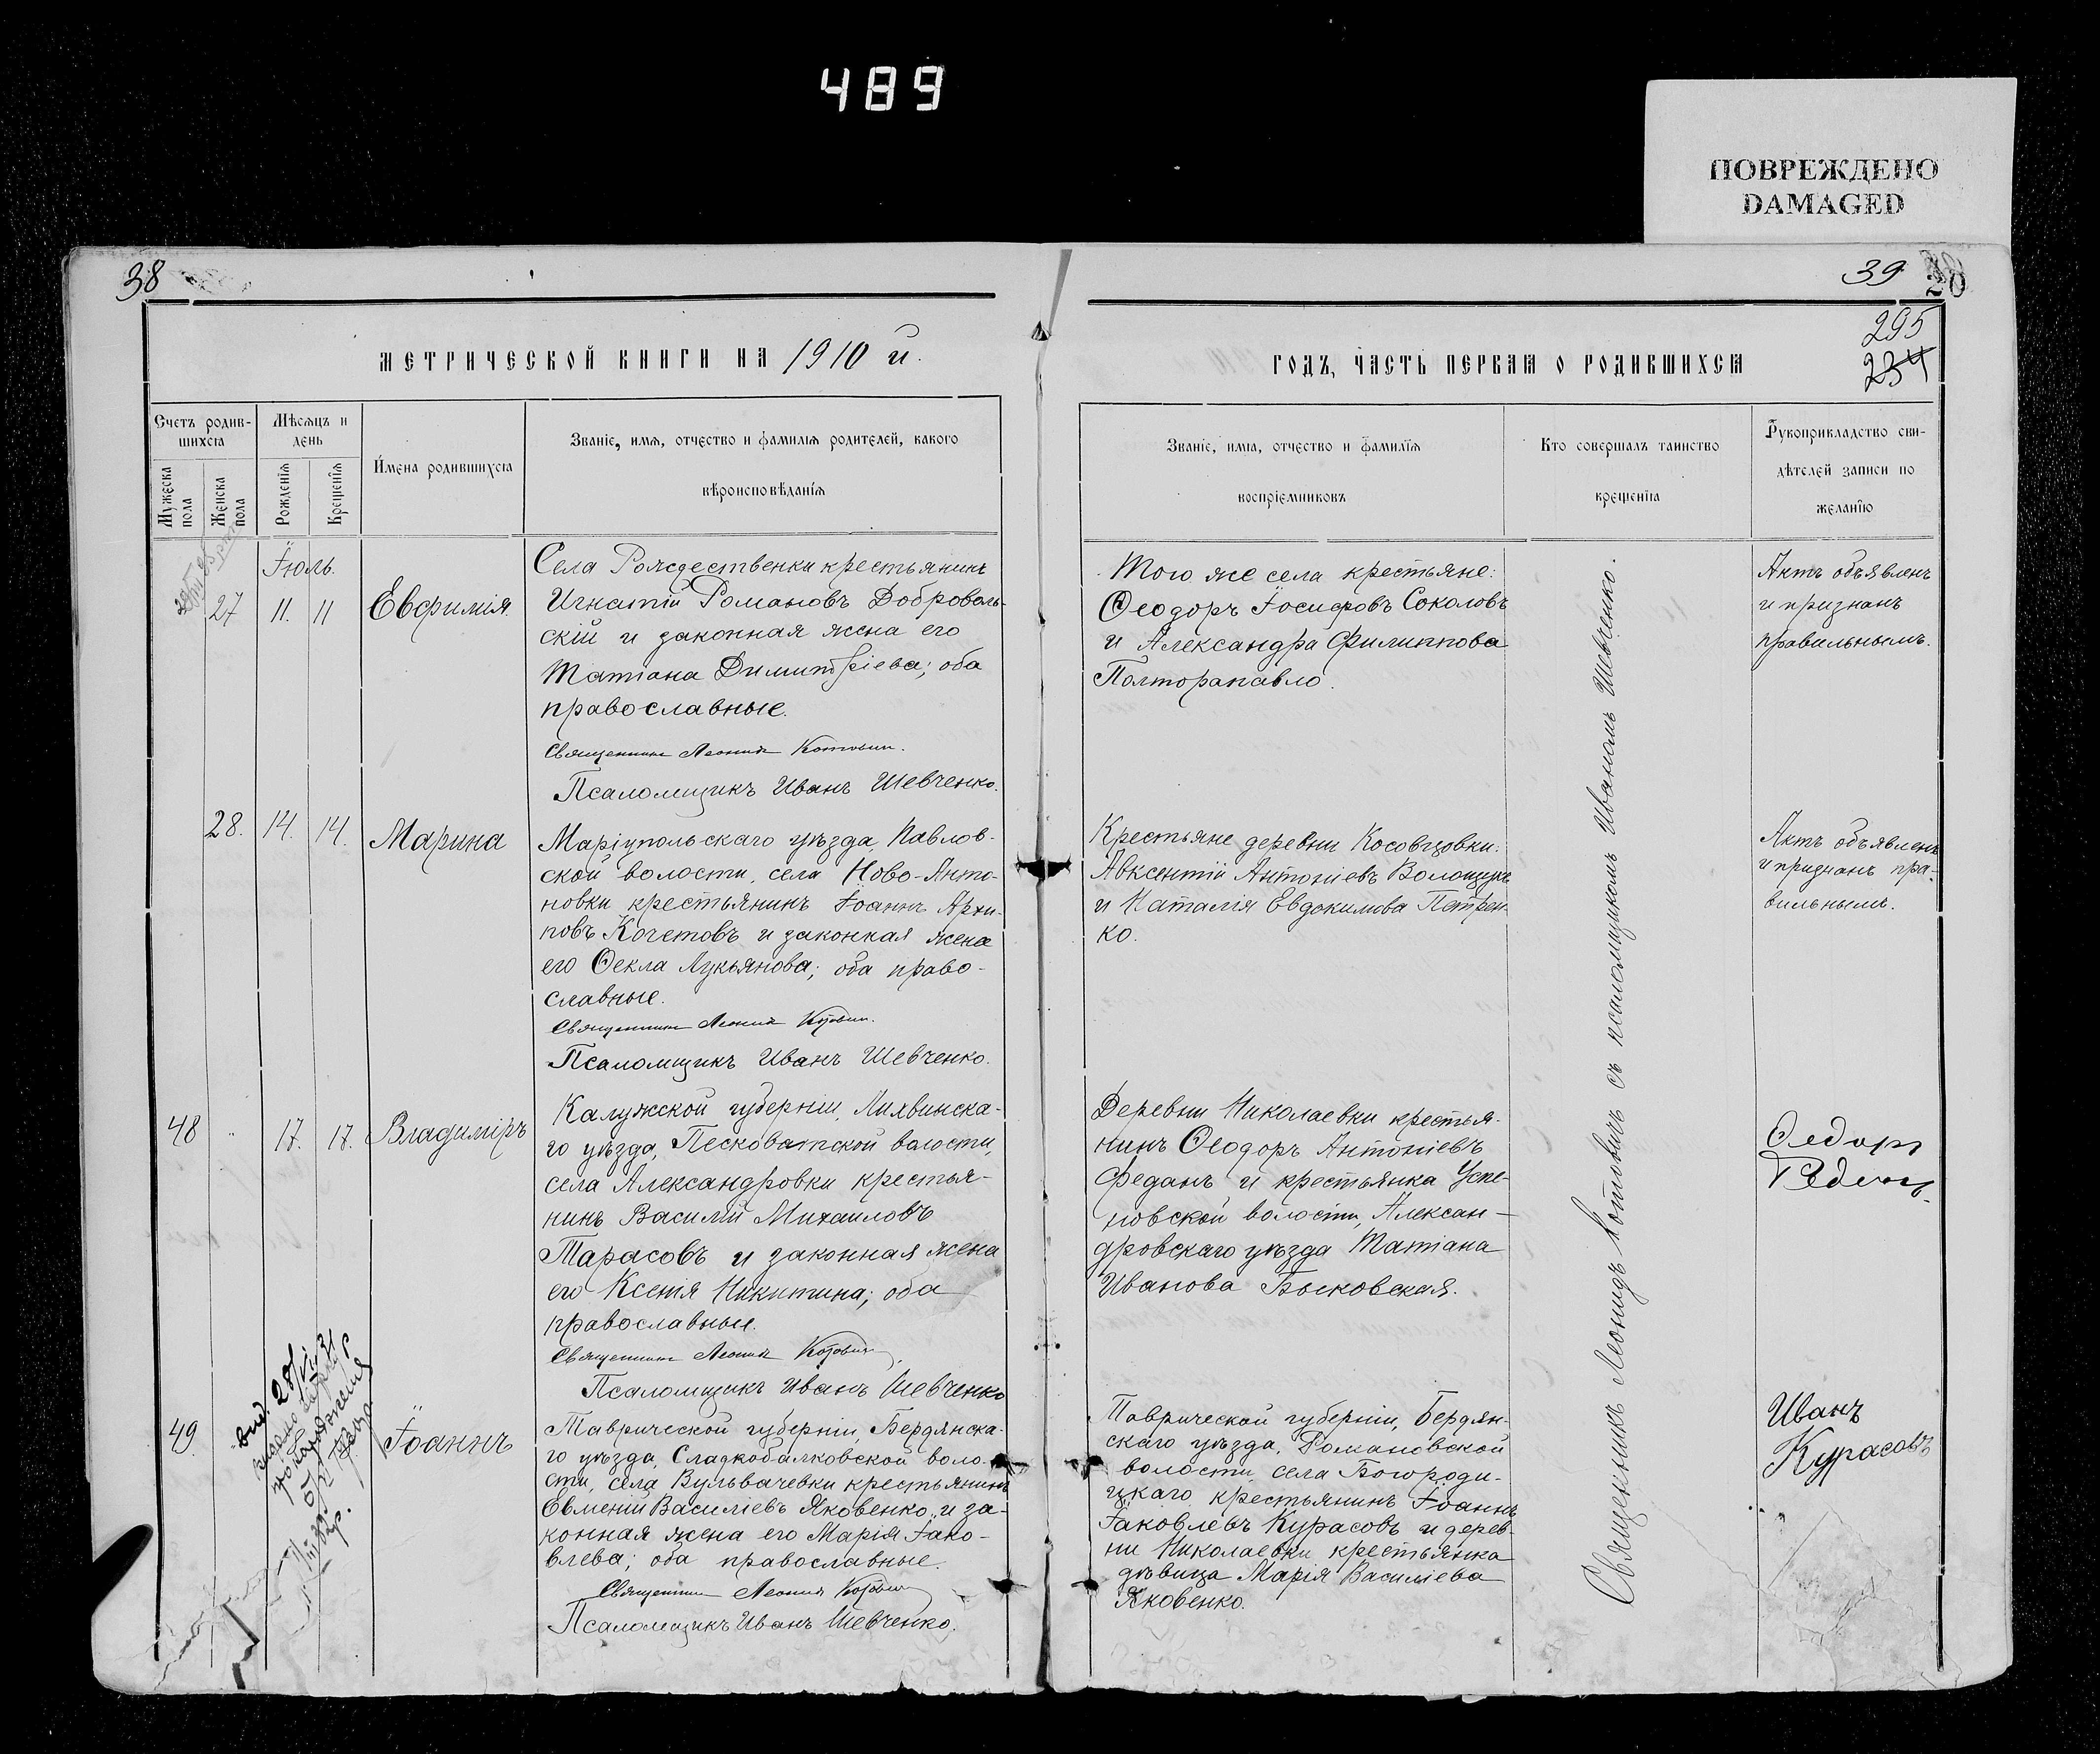 489
ПОВРЕЖДЕНО
DAMAGED
38
МЕТРИЧЕСКОЙ КНИГИ НА 1910 й.
Счетъ родив-
шихся
Мѣсяцъ и
день
Мужеска
пола
Женска
пола
Рожденія
Крещенія
Имена родившихся
Званіе, имя, отчество и фамилія родителей, какого
вѣроисповѣданія
Іюль.
27
11.
11
Евфимія.
Села Рождественки крестьянинъ
Игнатій Романовъ Доброволь-
скій и законная жена его
Татіана Димитріева; оба
православные.
Священникъ Леонидъ Котовичъ.
Псаломщикъ Иванъ Шевченко.
28.
14.
14.
Марина
Маріупольскаго уѣзда, Павлов-
ской волости, села Ново-Анто-
новки крестьянинъ Іоаннъ Архи-
повъ Кочетовъ и законная жена
его Ѳекла Лукьянова; оба право-
славные.
Священникъ Леонидъ Котовичъ.
Псаломщикъ Иванъ Шевченко.
48
17.
17.
Владиміръ
Калужской губерніи, Лихвинска-
го уѣзда, Песковатской волости,
села Александровки крестья-
нинъ Василій Михаиловъ
Тарасовъ и законная жена
его Ксенія Никитина; оба
православные.
Священникъ Леонидъ Котовичъ.
Псаломщикъ Иванъ Шевченко
49
вид. 28/
Іоаннъ
Таврической губерніи, Бердянска-
го уѣзда, Сладкобалковской воло-
сти, села Вульвачевки крестьянинъ
Евменій Василіевъ Яковенко и за-
конная жена его Марія Іако-
влева; оба православные.
Священникъ Леонидъ Котовичъ
Псаломщикъ Иванъ Шевченко.
39
28
295
234
ГОДЪ, ЧАСТЬ ПЕРВАЯ О РОДИВШИХСЯ
Званіе, имя, отчество и фамилія
воспріемниковъ
Кто совершалъ таинство
крещенія
Рукоприкладство сви-
дѣтелей записи по
желанію
Того же села крестьяне:
Ѳеодоръ Іосифовъ Соколовъ
и Александра Филиппова
Полторапавло.
Актъ объявленъ
и признанъ
правильнымъ.
Крестьяне деревни Косовцовки:
Авксентій Антоніевъ Волощукъ
и Наталія Евдокимова Петрен-
ко.
Актъ объявленъ
и признанъ пра-
вильнымъ.
Деревни Николаевки крестья-
нинъ Ѳеодоръ Антоніевъ
Феданъ и крестьянка Успе-
новской волости, Алексан-
дровскаго уѣзда Татіана
Иванова Быковская.
Ѳедоръ
Таврической губерніи, Бердян-
скаго уѣзда, Романовской
волости, села Богороди-
цкаго крестьянинъ Іоаннъ
Іаковлевъ Курасовъ и дерев-
ни Николаевки крестьянка
дѣвица Марія Василіева
Яковенко.
Иванъ
Курасовъ
Священникъ Леонидъ Котовичъ съ псаломщикомъ Иваномъ Шевченко.